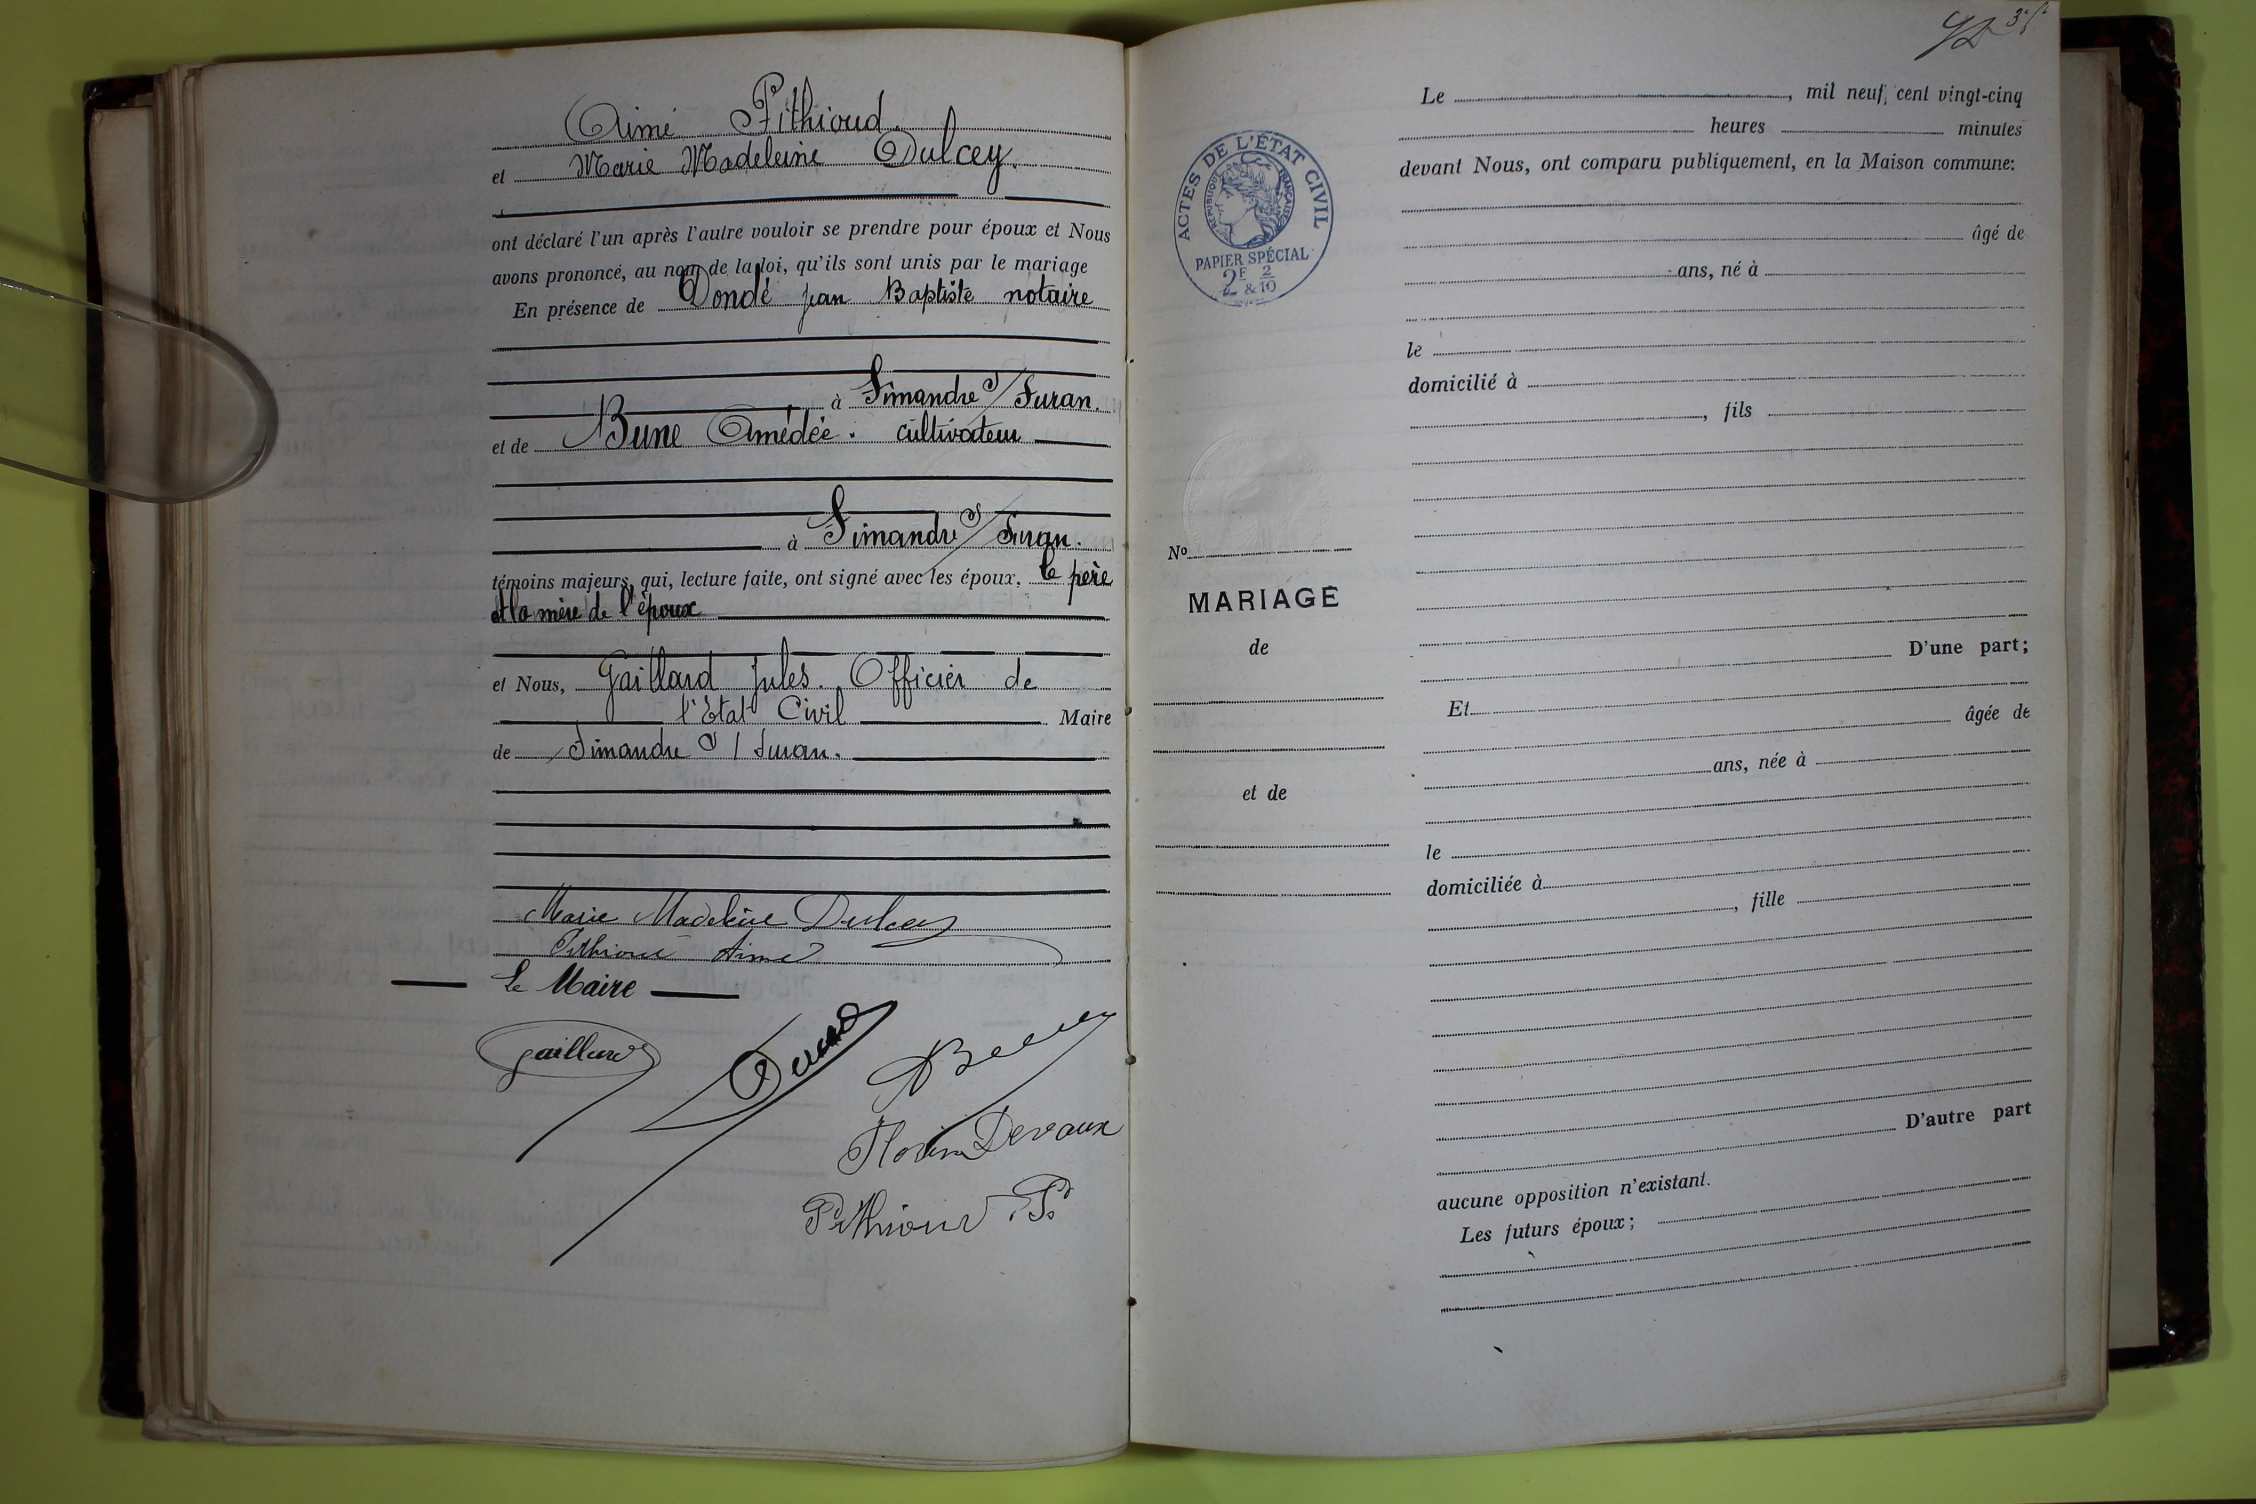 Aimé Pithioud.
et Marie Madeleine Dulcey.
ont déclaré l'un après l'autre vouloir se prendre pour époux et Nous
avons prononcé, au nom de la loi, qu'ils sont unis par le mariage
En présence de Dondé jean Baptiste notaire
à Simandre s/ Suran.
et de Bune Amédée. cultivateur
à Simandre s/ Suran.
témoins majeurs, qui, lecture faite, ont signé avec les époux. le père
et la mère de l'époux
et Nous, Gaillard jules. Officier de
l'Etat Civil Maire
de Simandre s/ Suran.
Marie Madeleine Dulcey
Pithioud Aimé
Le Maire
Gaillard
Devaux
Pithioud P.
35
Le , mil neuf cent vingt-cinq
heures minutes
devant Nous, ont comparu publiquement, en la Maison commune:
âgé de
ans, né à
le
domicilié à
, fils
D'une part;
Et
âgée de
ans, née à
le
domiciliée à
, fille
D'autre part
aucune opposition n'existant.
Les futurs époux;
ACTES DE L'ÉTAT CIVIL
RÉPUBLIQUE FRANÇAISE
PAPIER SPÉCIAL
2F & 2/10
No
MARIAGE
de
et de